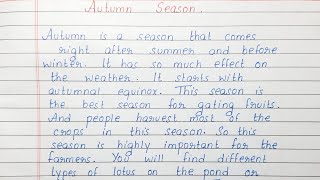 Autumn Season.
Autumn is a season that comes
right after summer and before
winter. It has so much effect on
the weather. It starts with
autumnal equinox. This season is
the best season for gating fruits.
And people harvest most of the
crops in this season. So this
season is highly important for the
farmers. You will find different
types of lotus on the pond or